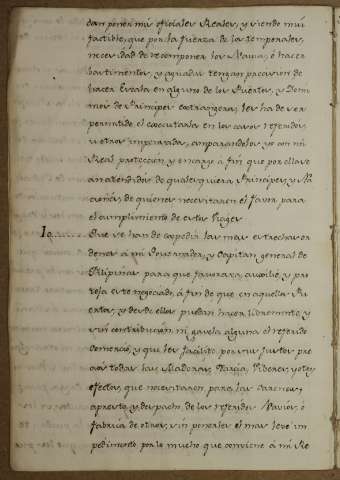 dan poner mis oficiales Reales, y siendo mui
factible, que por la fuerza de los temporales,
necesidad de recomponer los Navios, ó hacer
bastimentos, y aguada tengan precision de
hacer Escala en alguno de los Puertos, y Domi
nios de Principes extrangeros, les ha de ser
permitido el executarlo en los casos referidos,
ú otros impensados, amparandolos yo con mi
Real proteccion y encargo á fin que por ella se
an atendidos de qualesquiera Principes, y Na
ciones de quienes necesitaren el favor para
el cumplimiento de estos Viages
10 Que se han de expedir las mas estrechas or
denes á mi Governador, y Capitan general de
Filipinas para que favorezca, auxilie, y pro
teja este negociado, á fin de que en aquellos Pu
ertos, y desde ellos puedan hacer libremente, y
sin contribucion, ni gavela alguna el referido
Comercio, y que les facilite por sus justos pre
cios todas las Maderas, Xarcia, Viveres, y otros
efectos, que necesitaren para las Carenas,
apresto, y despacho de los referidos Navios, ó
fabrica de otros, sin ponerles el mas leve im
pedimento, por lo mucho que conviene á mi Re